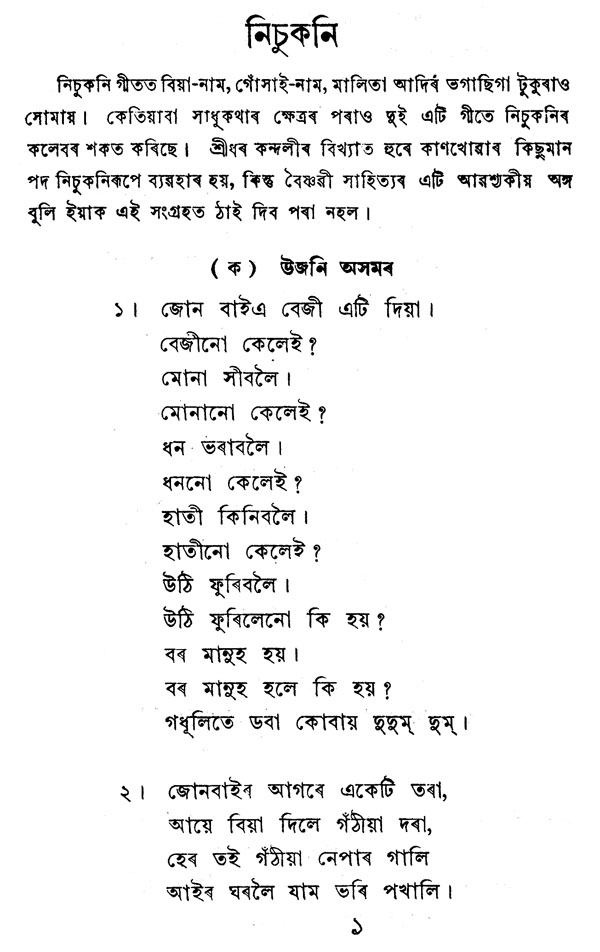 নিচুকনি
নিচুকনি গীতত বিয়া-নাম, গোঁসাই-নাম, মালিতা আদিৰ ভগাছিগা টুকুৰাও
সোমায়। কেতিয়াবা সাধুকথাৰ ক্ষেত্ৰৰ পৰাও দুই এটি গীতে নিচুকনিৰ
কলেবৰ শকত কৰিছে। শ্ৰীধৰ কন্দলীৰ বিখ্যাত হুৰে কাণখোৱাৰ কিছুমান
পদ নিচুকনিৰূপে ব্যৱহাৰ হয়, কিন্তু বৈষ্ণৱী সাহিত্যৰ এটি আৱশ্যকীয় অঙ্গ
বুলি ইয়াক এই সংগ্ৰহত ঠাই দিব পৰা নহল।
( ক ) উজনি অসমৰ
১। জোন বাইএ বেজী এটি দিয়া।
বেজীনো কেলেই?
মোনা সীবলৈ।
মোনানো কেলেই?
ধন ভৰাবলৈ।
ধননো কেলেই?
হাতী কিনিবলৈ।
হাতীনো কেলেই?
উঠি ফুৰিবলৈ।
উঠি ফুৰিলেনো কি হয়?
বৰ মানুহ হয়।
বৰ মানুহ হলে কি হয়?
গধূলিতে ডবা কোবায় দুদুম্ দুম্।
২। জোনবাইৰ আগৰে একেটি তৰা,
আয়ে বিয়া দিলে গঁঠীয়া দৰা,
হেৰ তই গঁঠীয়া নেপাৰ গালি
আইৰ ঘৰলৈ যাম ভৰি পখালি।
১